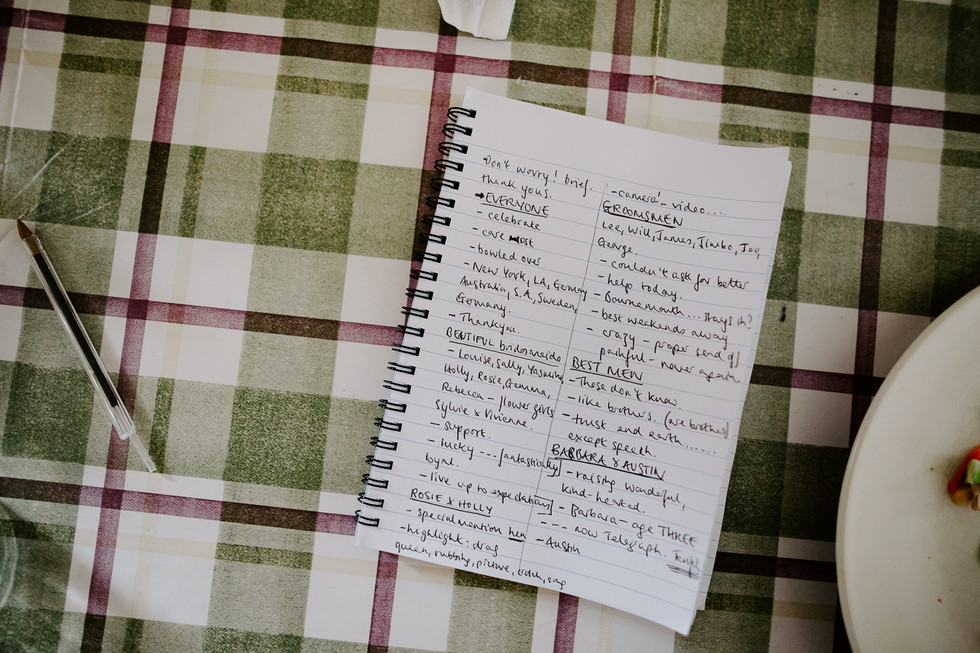 Don't worry! brief.
thank yous.
→EVERYONE
- celebrate
- care
- bowled over
- New York, LA, Germany
Australia, S.A, Sweden,
Germany.
- Thankyou.
BEUTIFUL bridesmaids
- Louise, Sally, Yasmine
Holly, Rosie, Gemma,
Rebecca - flower girls
Sylvie & Vivienne.
- support.
- lucky --- fantastically
- live up to expectations
ROSIE & HOLLY
- special mention hen
- highlight: drag
queen, picture,
- camera! - video....
GROOMSMEN
Lee, Will, James, Jimbo, Joy,
George.
- couldn't ask for better
- help today.
- Bournemouth... stays in?
- best weekends away
- crazy - proper send off
painful - never again
BEST MEN
- Those don't know.
- like brothers. (are brothers)
- trust and earth.......
except speech.
BARBARA & AUSTIN
- raising wonderful,
kind-hearted.
- Barbara - age THREE
--- now Telegraph.
- Austin